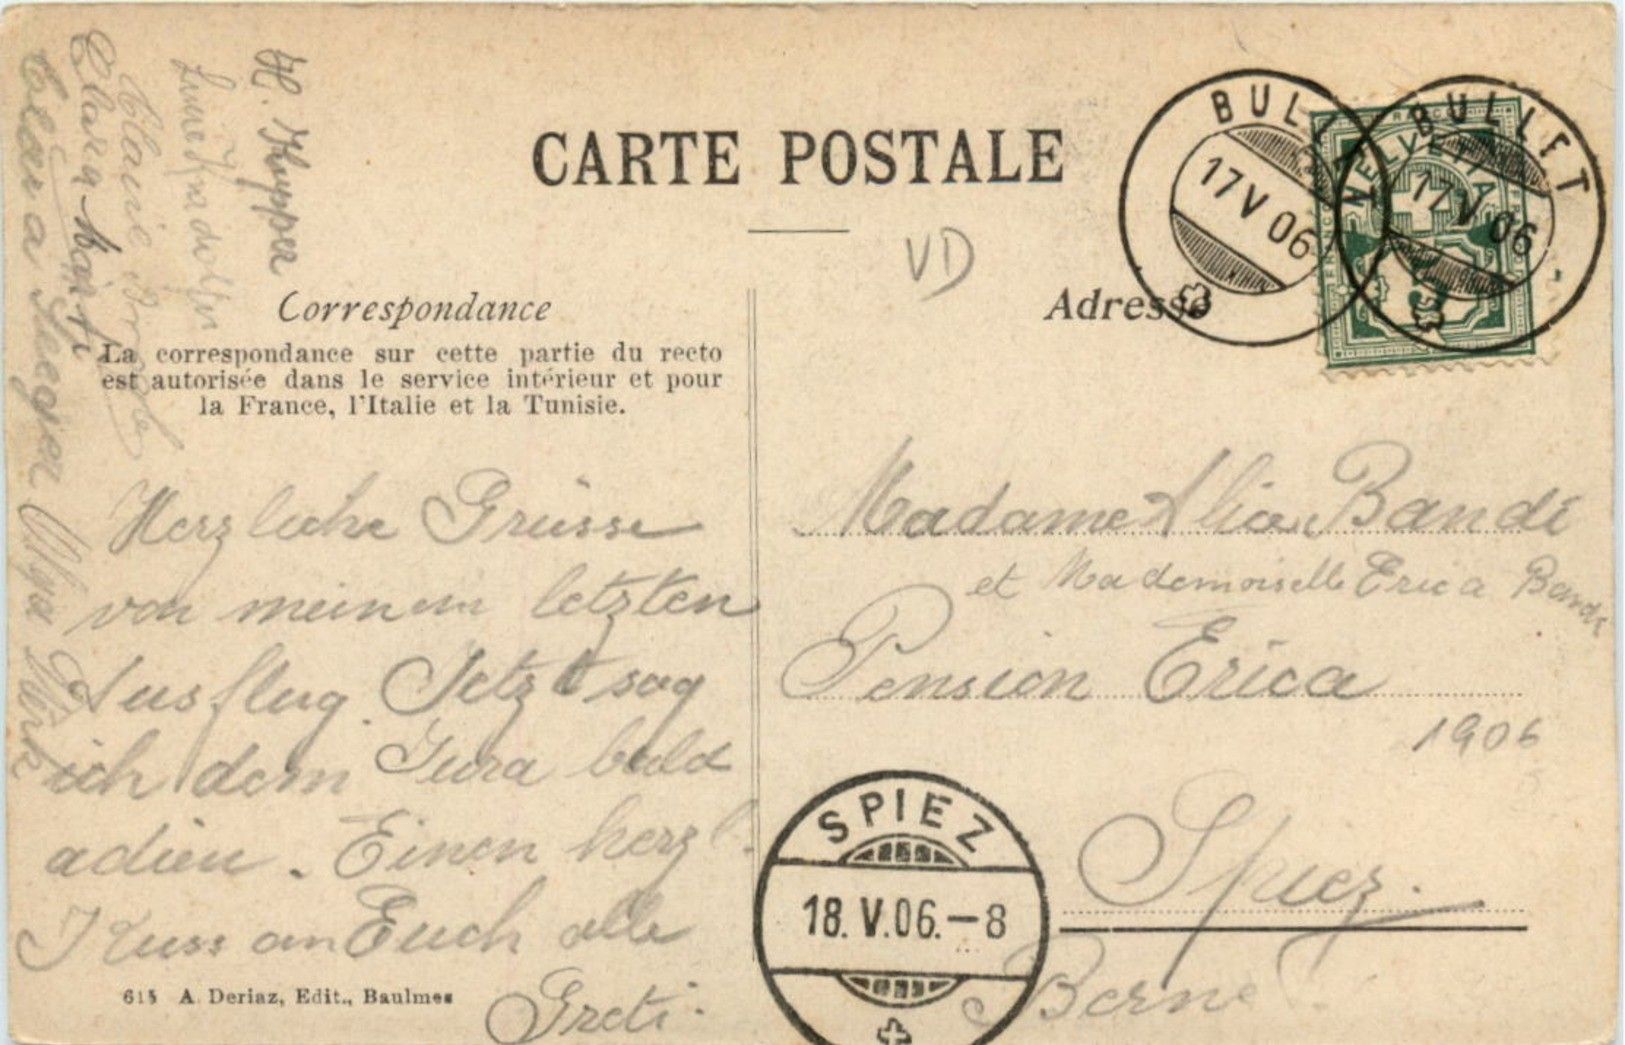 CARTE POSTALE
VD
Correspondance
La correspondance sur cette partie du recto
est autorisée dans le service intérieur et pour
la France, l'Italie et la Tunisie.
Adresse
BULLET
17 V 06
BULLET
17 V 06
HELVETIA
FRANCO
H. Kupper
Clara Marti
Clara Seeger Olga Merk
Herzliche Grüsse
von meinem letzten
Ausflug. Jetzt sag
ich dem Jura bald
adieu. Einen herzl.
Kuss an Euch alle
Greti.
Madame Alice Bandi
et Mademoiselle Erica Bandi
Pension Erica
1906
Spiez.
Berne
SPIEZ
18. V. 06. – 8
615 A. Deriaz, Edit., Baulmes